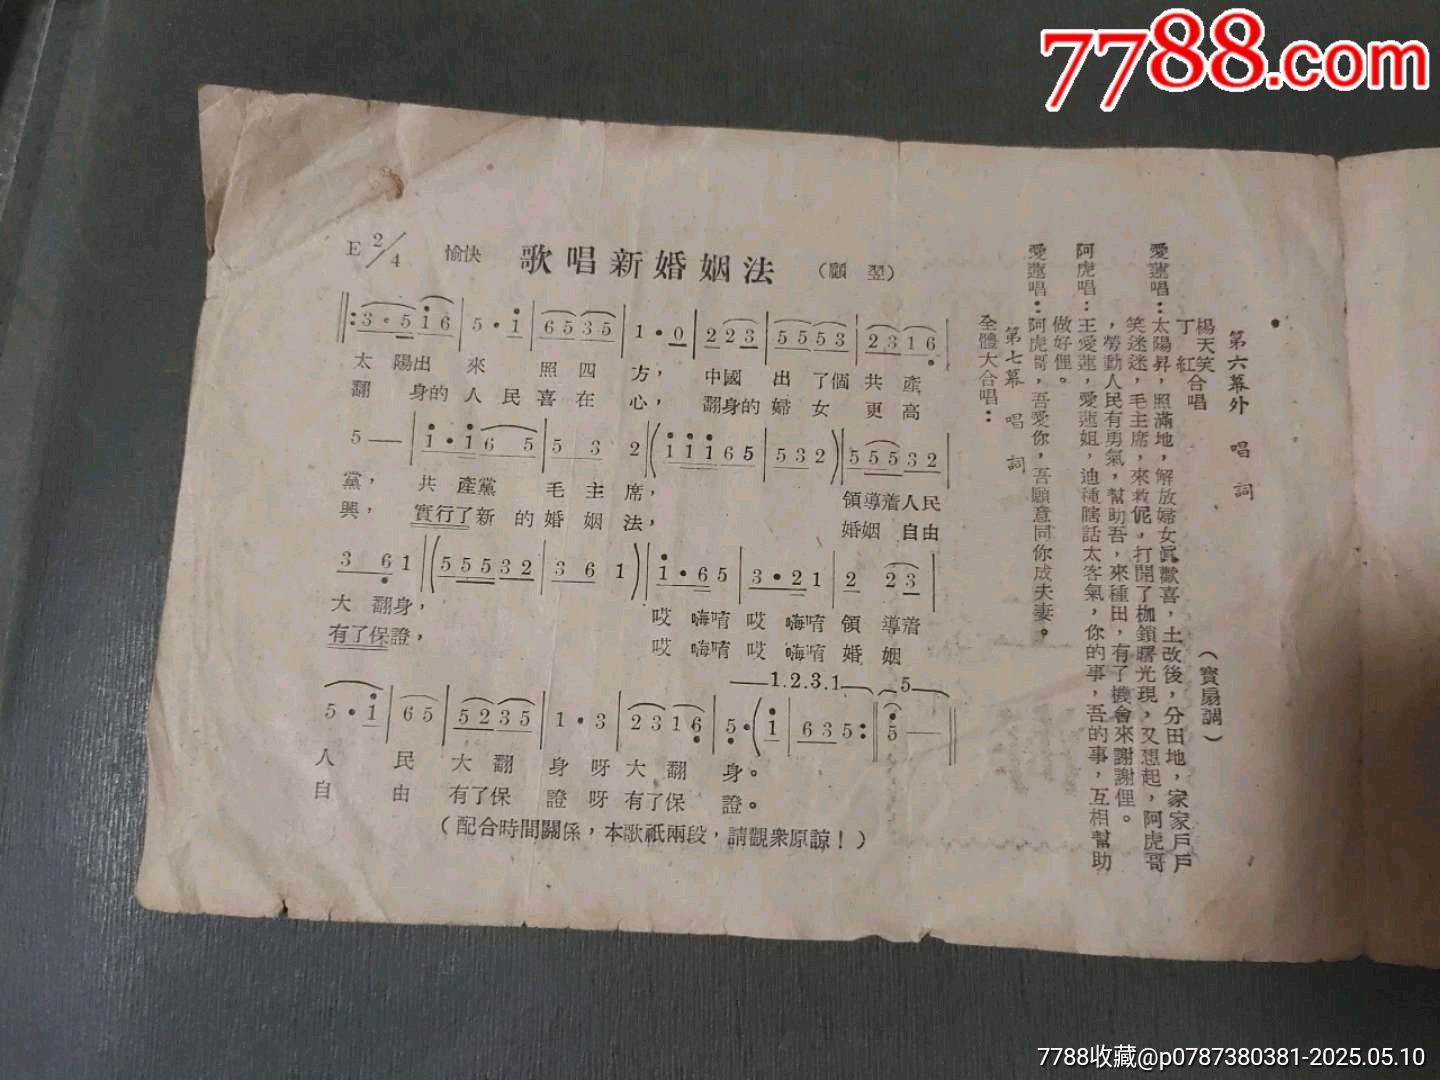 7788.com
第六幕外 唱詞
(寶扇調)
楊天笑
丁紅合唱
愛蓮唱：太陽昇，照滿地，解放婦女眞歡喜，土改後，分田地，家家戶戶
笑迷迷，毛主席，來救伲，打開了枷鎖曙光現，又想起，阿虎哥
，勞動人民有勇氣，幫助吾，來種田，有了機會來謝謝俚。
阿虎唱：王愛蓮，愛蓮姐，迪種瞎話太客氣，你的事，吾的事，互相幫助
做好俚。
愛蓮唱：阿虎哥，吾愛你，吾願意同你成夫妻。
第七幕 唱詞
全體大合唱：
E 2/4 愉快 歌唱新婚姻法 (顧翌)
3·5 i 6 | 5·i | 65 35 | 1·0 | 2 23 | 55 53 | 23 16
太陽出來照四方，中國出了個共產
翻身的人民喜在心，翻身的婦女更高
5 — | i·i 6 5 | 5 3 2 | (i i i 65 | 5 3 2) | 5 55 32
黨，共產黨毛主席，領導着人民
興，實行了新的婚姻法，婚姻自由
3 6 1 | (5 55 32 | 3 6 1) | i·6 5 | 3·2 1 | 2 23
大翻身，哎嗨唷哎嗨唷領導着
有了保證，哎嗨唷哎嗨唷婚姻
1.2.3.1 5
5·i | 65 | 52 35 | 1·3 | 23 16 | 5·(i | 635 5 :| 5 —
人民大翻身呀大翻身。
自由有了保證呀有了保證。
(配合時間關係，本歌祇兩段，請觀衆原諒！)
7788收藏@p0787380381-2025.05.10